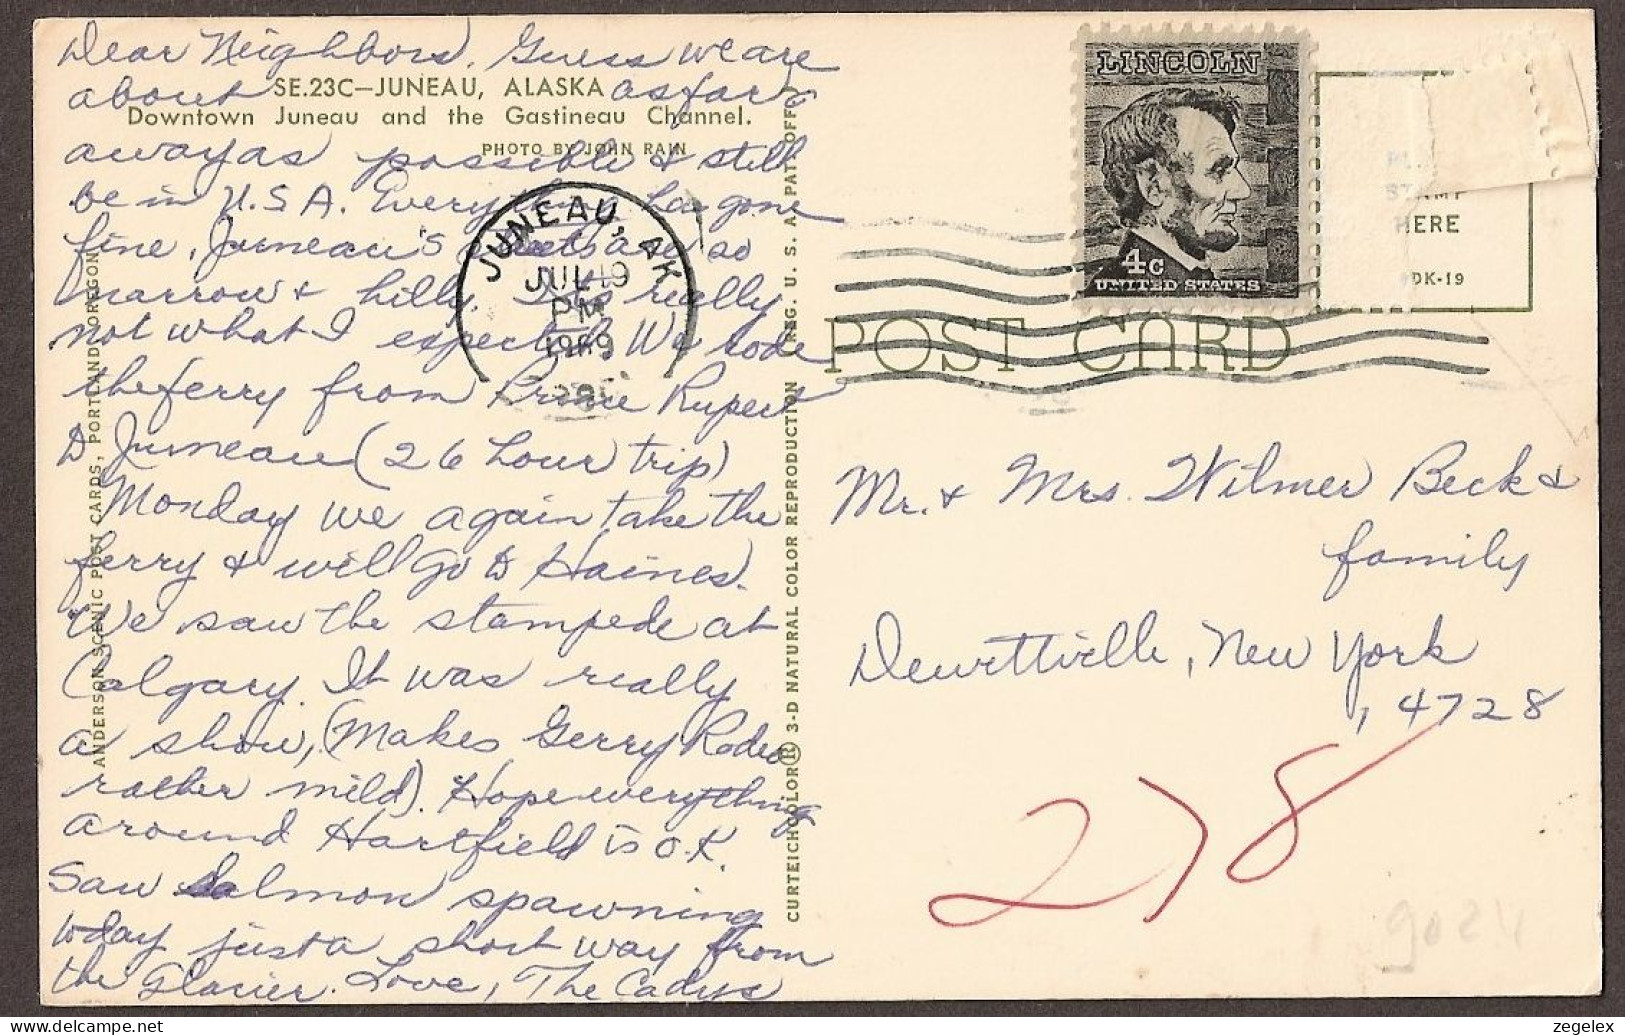 Dear Neighbors, Guess we are
about as far
SE.23C—JUNEAU, ALASKA
Downtown Juneau and the Gastineau Channel.
PHOTO BY JOHN RAIN
away as possible & still
be in U.S.A. Everything has gone
fine. Juneau's streets are so
narrow & hilly. It is really
not what I expected. We rode
the ferry from Prince Rupert
to Juneau (26 hour trip)
Monday we again take the
ferry & will go to Haines.
We saw the stampede at
Calgary. It was really
a show, (Makes Gerry Rodeo
rather mild). Hope everything
around Hartfield is O.K.
Saw Salmon spawning
today just a short way from
the Glacier. Love, The Cadys
ANDERSON SCENIC POST CARDS, PORTLAND OREGON
CURTEICHCOLOR® 3-D NATURAL COLOR REPRODUCTION REG. U. S. A. PAT. OFF.
JUNEAU, AK
JUL 19
PM
1969
LINCOLN
4c
UNITED STATES
STAMP
HERE
DK-19
POST CARD
Mr. & Mrs. Wilmer Beck &
family
Dewittville, New York
14728
278
9024
zegelex
www.delcampe.net